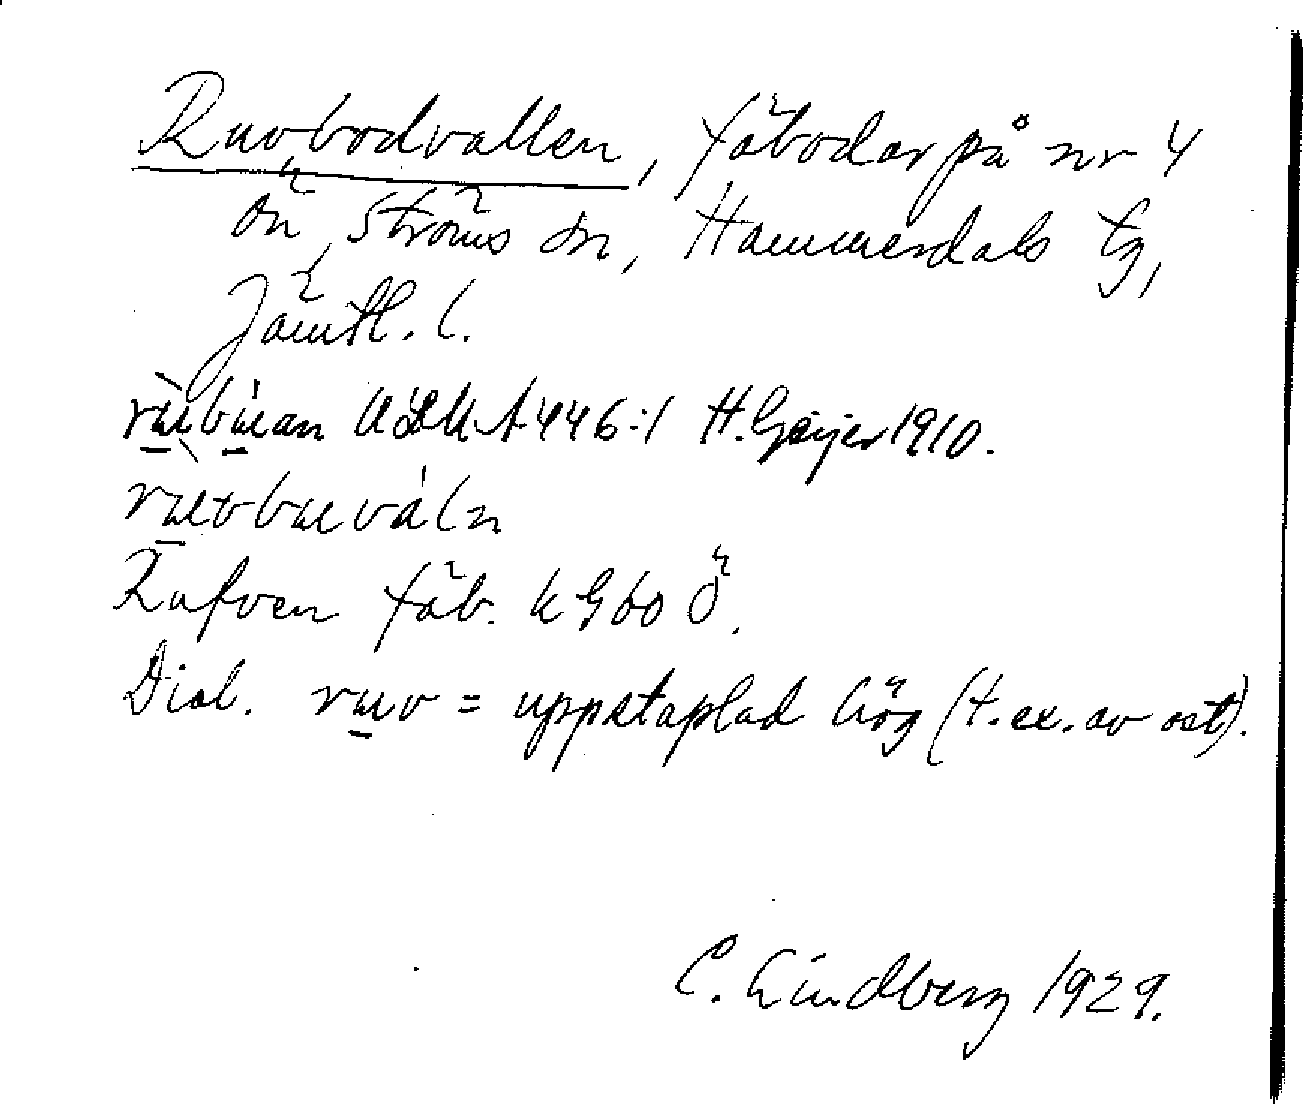 Ruvbodvallen, fäbodar på nr 4
Ön, Ströms sn, Hammerdals tg,
Jämtl. l.
ULMA 446:1 H. Geijer 1910.
Rufven fäb. k G 60 Ö.
Dial. = uppstaplad hög (t. ex. av ost).
C. Lindberg 1929.